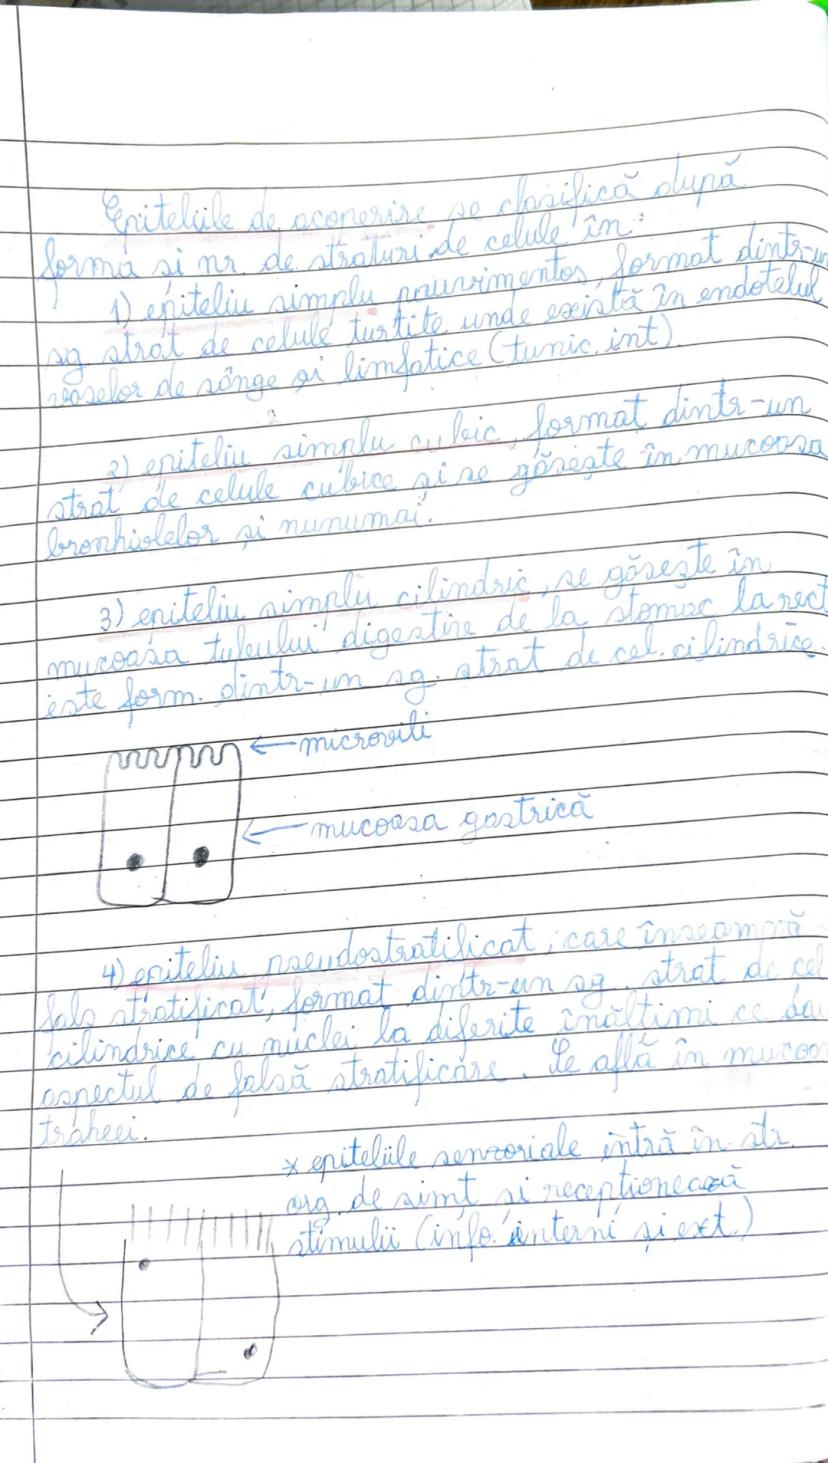 Epiteliile de acoperire se clasifică după
forma și nr. de straturi de celule în:
1) epiteliu simplu pauvimentos, format dintr-un
sg strat de celule turtite unde există în endotelul
vaselor de sânge și limfatice (tunic. int)
2) epiteliu simplu cubic, format dintr-un
strat de celule cubice și se găsește în mucoasa
bronhiolelor și nunumai.
3) epiteliu simplu cilindric, se găsește în
mucoasa tubului digestiv de la stomac la rect
este form. dintr-un sg. strat de cel. cilindrice.
← microvili
← mucoasa gastrică
4) epiteliu pseudostratificat, care înseamnă
fals stratificat, format dintr-un sg. strat de cel
cilindrice cu nuclei la diferite înălțimi ce dau
aspectul de falsă stratificare. Se află în mucoa
traheei.
* epiteliile senzoriale intră în str.
org. de simț și recepționează
stimulii (info. interni și ext.)